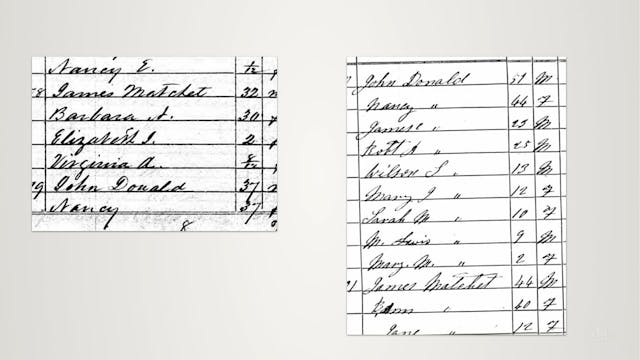 Nancy E. ½
58 James Matchet 32
Barbara A. 30
Elizabeth J. 2
Virginia A. 8/12
John Donald 37
Nancy 37
8
John Donald 51 M
Nancy " 44 F
James " 23 M
Robt A " 25 M
Wilson S " 13 M
Mary J " 12 F
Sarah M " 10 F
M. Lewis " 9 M
Mary. M. " 2 F
James Matchet 44 M
" 40 F
Jane " 12 F